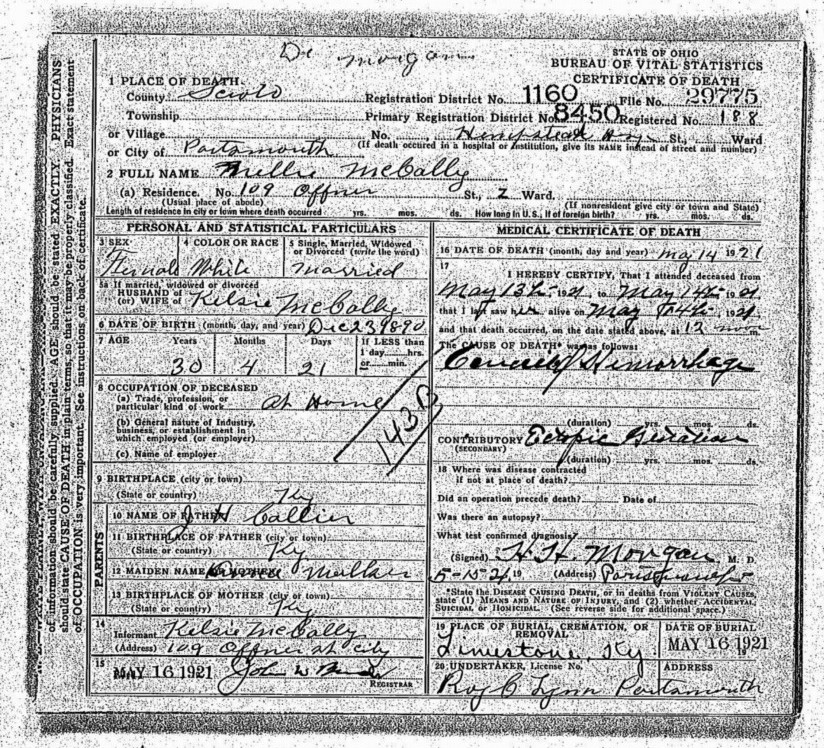 Dr Morgan
STATE OF OHIO
BUREAU OF VITAL STATISTICS
CERTIFICATE OF DEATH
1 PLACE OF DEATH
County Scioto Registration District No. 1160 File No. 29775
Township Primary Registration District No. 8450 Registered No. 188
or Village No. Hempstead Hosp. St., Ward
or City of Portsmouth (If death occured in a hospital or institution, give its NAME instead of street and number)
2 FULL NAME Millie McCally
(a) Residence. No. 109 Offner St., 2 Ward.
(Usual place of abode) (If nonresident give city or town and State)
Length of residence in city or town where death occurred yrs. mos. ds. How long in U. S., if of foreign birth? yrs. mos. ds.
PERSONAL AND STATISTICAL PARTICULARS
3 SEX 4 COLOR OR RACE 5 Single, Married, Widowed or Divorced (write the word)
Female White Married
5a If married, widowed or divorced
HUSBAND of
(or) WIFE of Kelsie McCally
6 DATE OF BIRTH (month, day, and year) Dec 23 1890
7 AGE Years Months Days If LESS than
1 day hrs.
or min.
30 4 21
8 OCCUPATION OF DECEASED
(a) Trade, profession, or
particular kind of work At Home
(b) General nature of Industry,
business, or establishment in
which employed (or employer)
(c) Name of employer
143B
9 BIRTHPLACE (city or town)
(State or country) Ky
PARENTS
10 NAME OF FATHER J H Callier
11 BIRTHPLACE OF FATHER (city or town)
(State or country) Ky
12 MAIDEN NAME OF MOTHER
13 BIRTHPLACE OF MOTHER (city or town)
(State or country) Ky
14
Informant Kelsie McCally
(Address) 109 Offner St city
15
MAY 16 1921 John W
REGISTRAR
MEDICAL CERTIFICATE OF DEATH
16 DATE OF DEATH (month, day and year) May 14 1921
17
I HEREBY CERTIFY, That I attended deceased from
May 13th, 1921, to May 14th, 1921
that I last saw her alive on May 14th, 1921
and that death occurred, on the date stated above, at 12 noon
The CAUSE OF DEATH* was as follows:
Hemorrhage
(duration) yrs. mos. ds.
CONTRIBUTORY Ectopic
(SECONDARY)
(duration) yrs. mos. ds.
18 Where was disease contracted
if not at place of death?
Did an operation precede death? Date of
Was there an autopsy?
What test confirmed diagnosis?
(Signed) H. H. Morgan M. D.
5-15-21, 19 (Address) Portsmouth
*State the DISEASE CAUSING DEATH, or in deaths from VIOLENT CAUSES,
state (1) MEANS AND NATURE OF INJURY, and (2) whether ACCIDENTAL,
SUICIDAL or HOMICIDAL. (See reverse side for additional space.)
19 PLACE OF BURIAL, CREMATION, OR
REMOVAL
Limestone, Ky
DATE OF BURIAL
MAY 16 1921
20 UNDERTAKER, License No.
Roy C Lynn
ADDRESS
Portsmouth
of information should be carefully supplied. AGE should be stated EXACTLY. PHYSICIANS
should state CAUSE OF DEATH in plain terms, so that it may be properly classified. Exact statement
of OCCUPATION is very important. See instructions on back of certificate.